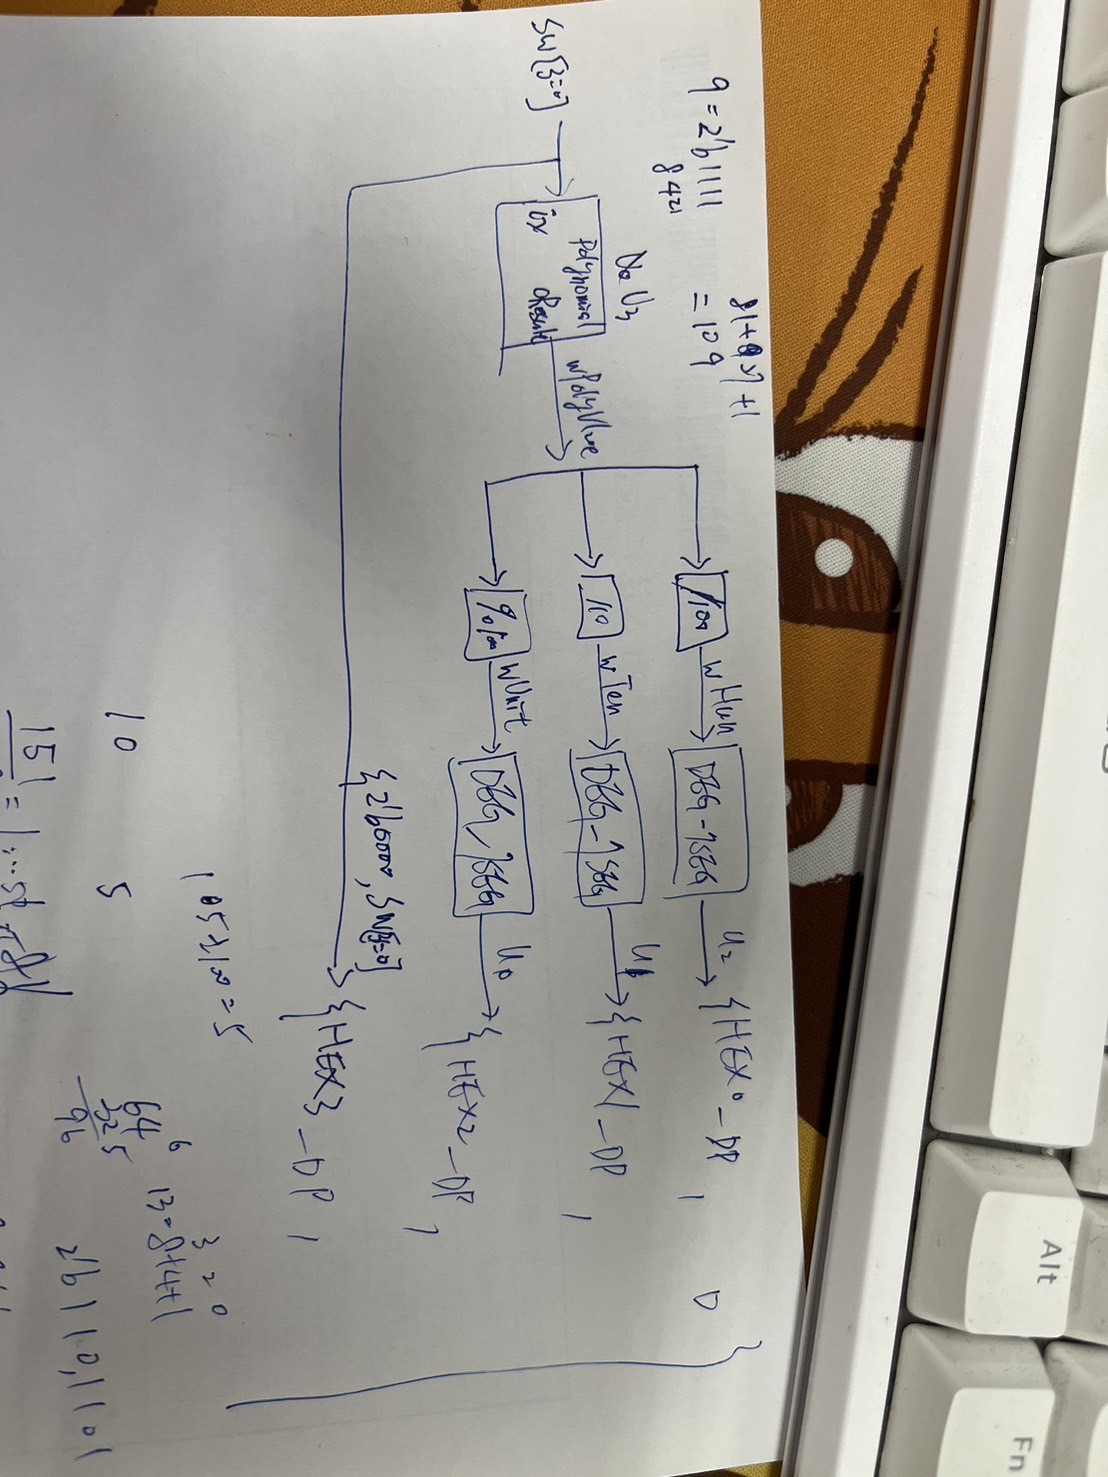 9 = 2'b1111
8421
81+9x7+1
= 109
U3
SW[3=0]
Polynomial
ix
oResult
wPolyValue
/100
wHun
DEG-7SEG
U2
{HEX0-DP, 0}
/10
wTen
DEG-7SEG
U1
{HEX1-DP,
%100
wUnit
DEG-7SEG
U0
{HEX2-DP,
{2'b0000, SW[3=0]
{HEX3-DP,
105%100=5
10
5
151
64 6
32 5
96
3 2 = 0
13=8+4+1
2'b110,1101
Alt
Fn